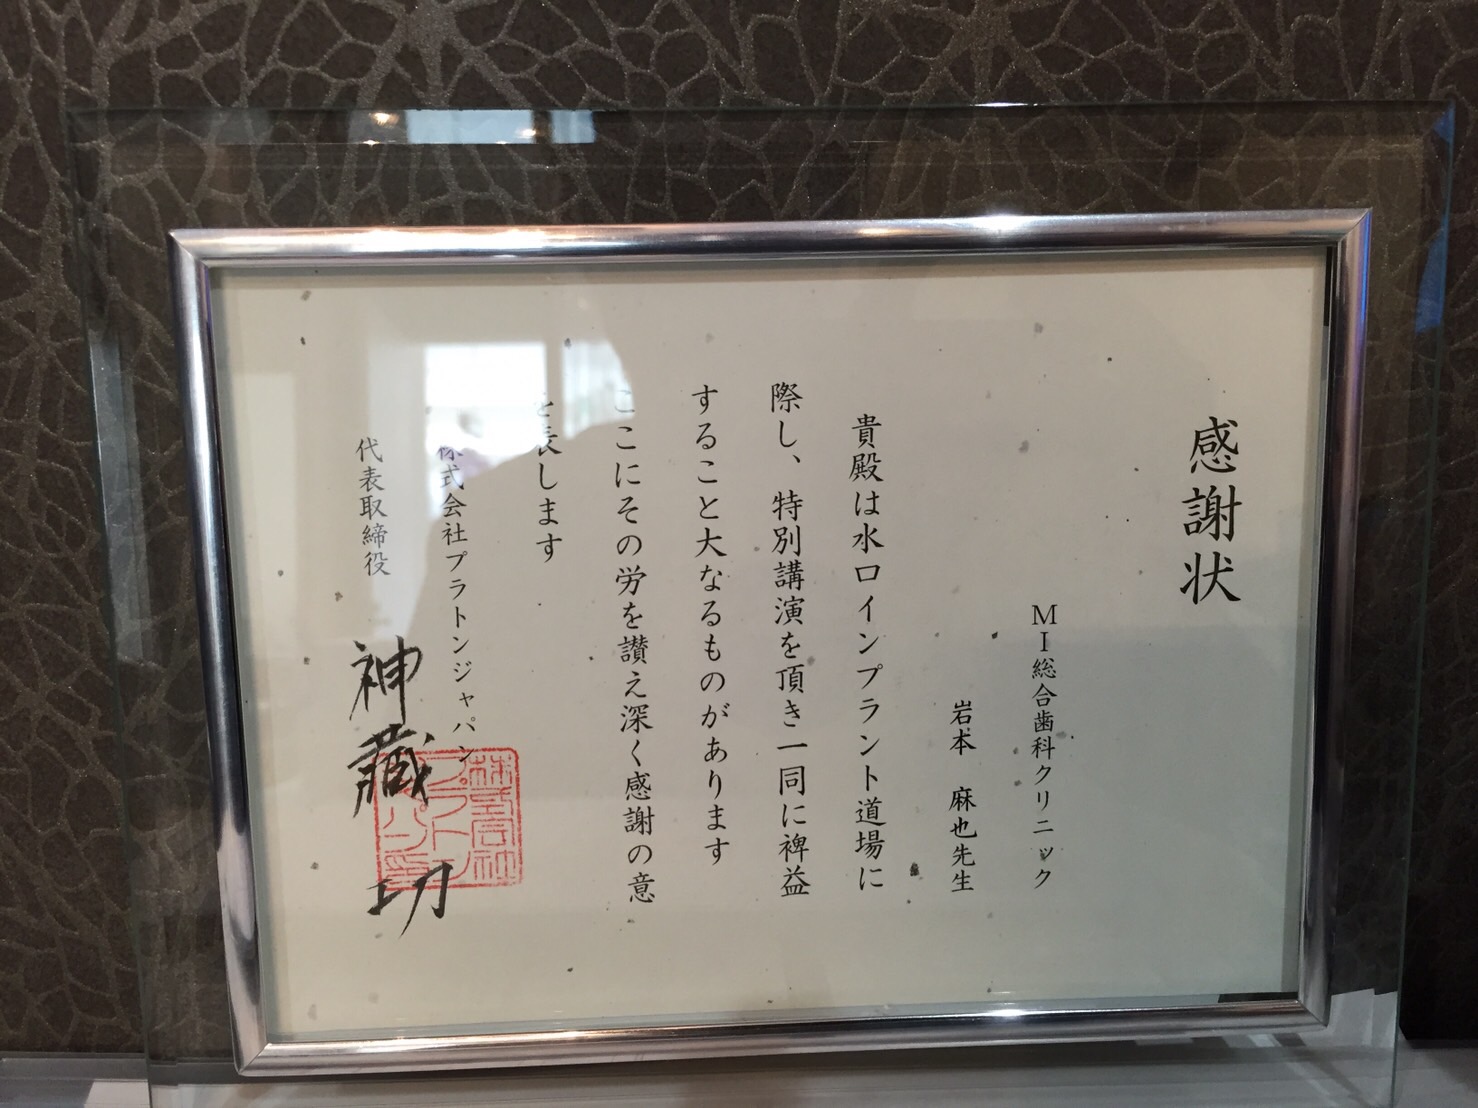 感謝状
MI総合歯科クリニック
岩本 麻也先生
貴殿は水口インプラント道場に
際し、特別講演を頂き一同に裨益
すること大なるものがあります
ここにその労を讃え深く感謝の意
を表します
株式会社プラトンジャパン
代表取締役 神蔵 功
株式会社
プラトンジ
ャパン印